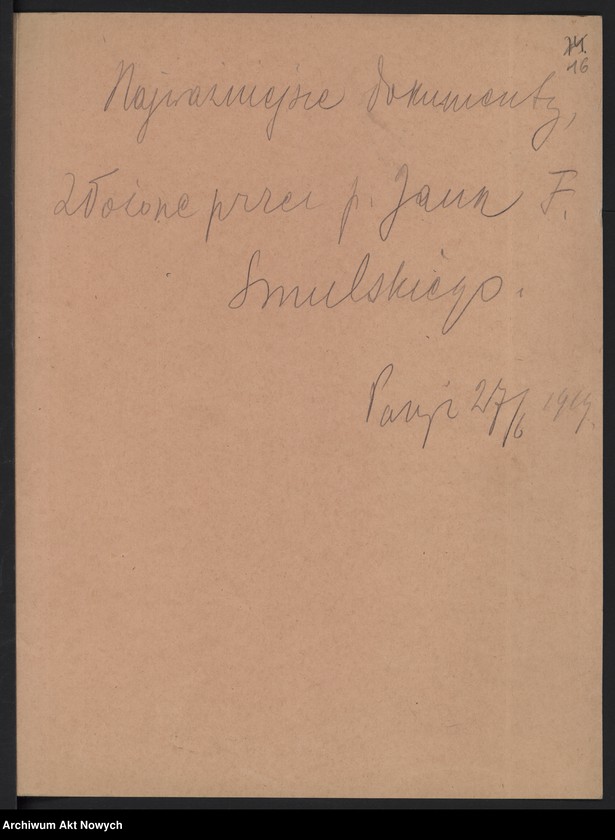 16
Najważniejsze dokumenty,
złożone przez p. Jana F.
Smulskiego.
Paryż 27/6 1919.
Archiwum Akt Nowych